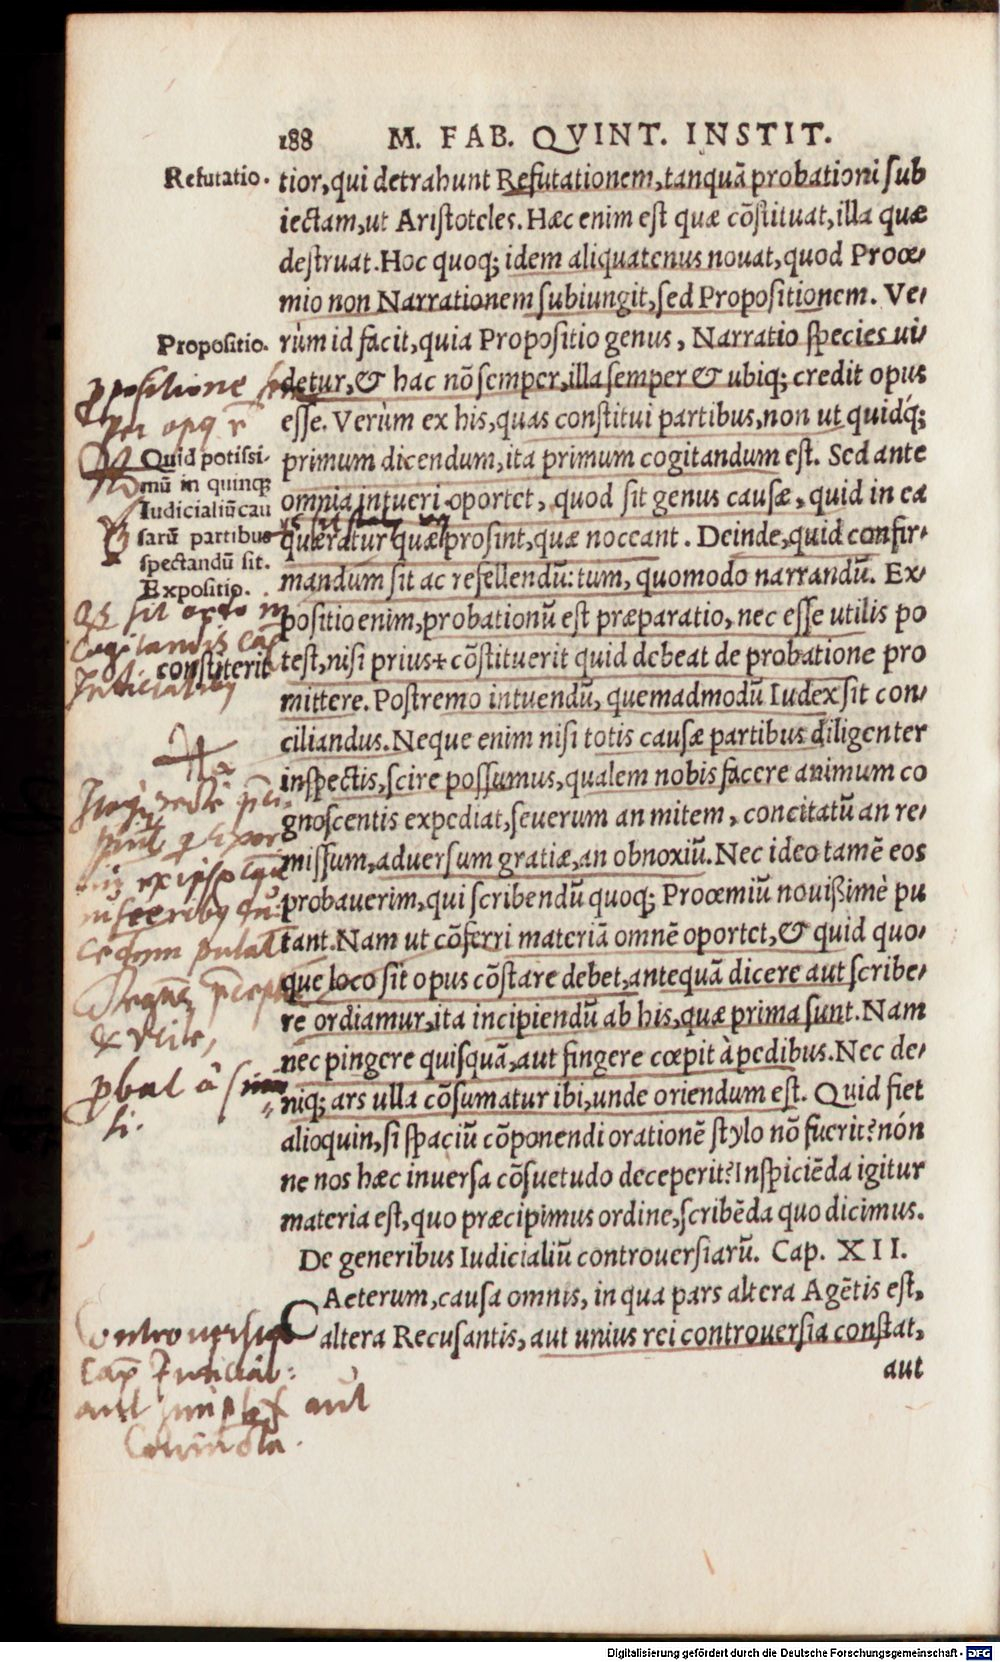 188 M. FAB. QVINT. INSTIT.
Refutatio.
tior, qui detrahunt Refutationem, tanquā probationi sub
iectam, ut Aristoteles. Hæc enim est quæ cōstituat, illa quæ
destruat. Hoc quoq; idem aliquatenus nouat, quod Procœ-
mio non Narrationem subiungit, sed Propositionem. Ve-
Propositio.
rùm id facit, quia Propositio genus, Narratio species ui-
detur, & hac nō semper, illa semper & ubiq; credit opus
esse. Verùm ex his, quas constitui partibus, non ut quidq́;
primum dicendum, ita primum cogitandum est. Sed ante
omnia intueri oportet, quod sit genus causæ, quid in ea
quæratur quæ prosint, quæ noceant. Deinde, quid confir-
mandum sit ac refellendū: tum, quomodo narrandū. Ex-
positio enim, probationū est præparatio, nec esse utilis po
test, nisi prius + cōstituerit quid debeat de probatione pro
mittere. Postremo intuendū, quemadmodū Iudex sit con-
ciliandus. Neque enim nisi totis causæ partibus diligenter
inspectis, scire possumus, qualem nobis facere animum co
gnoscentis expediat, seuerum an mitem, concitatū an re-
missum, aduersum gratiæ, an obnoxiū. Nec ideo tamē eos
probauerim, qui scribendū quoq; Prooemiū nouißimè pu
tant. Nam ut cōferri materiā omnē oportet, & quid quo-
que loco sit opus cōstare debet, antequā dicere aut scribe-
re ordiamur, ita incipiendū ab his, quæ prima sunt. Nam
nec pingere quisquā, aut fingere cœpit à pedibus. Nec de-
niq; ars ulla cōsumatur ibi, unde oriendum est. Quid fiet
alioquin, si spaciū cōponendi orationē stylo nō fuerit? nón
ne nos hæc inuersa cōsuetudo deceperit? Inspiciēda igitur
materia est, quo præcipimus ordine, scribēda quo dicimus.
De generibus Iudicialiū controuersiarū. Cap. XII.
CAeterum, causa omnis, in qua pars altera Agētis est,
altera Recusantis, aut unius rei controuersia constat,
aut
Quid potissi-
mū in quinq;
Iudicialiū cau
sarū partibus
spectandū sit.
Expositio.
constiterit
& vtile,
pbat à simi
li.
aut simplex aut
Digitalisierung gefördert durch die Deutsche Forschungsgemeinschaft - DFG